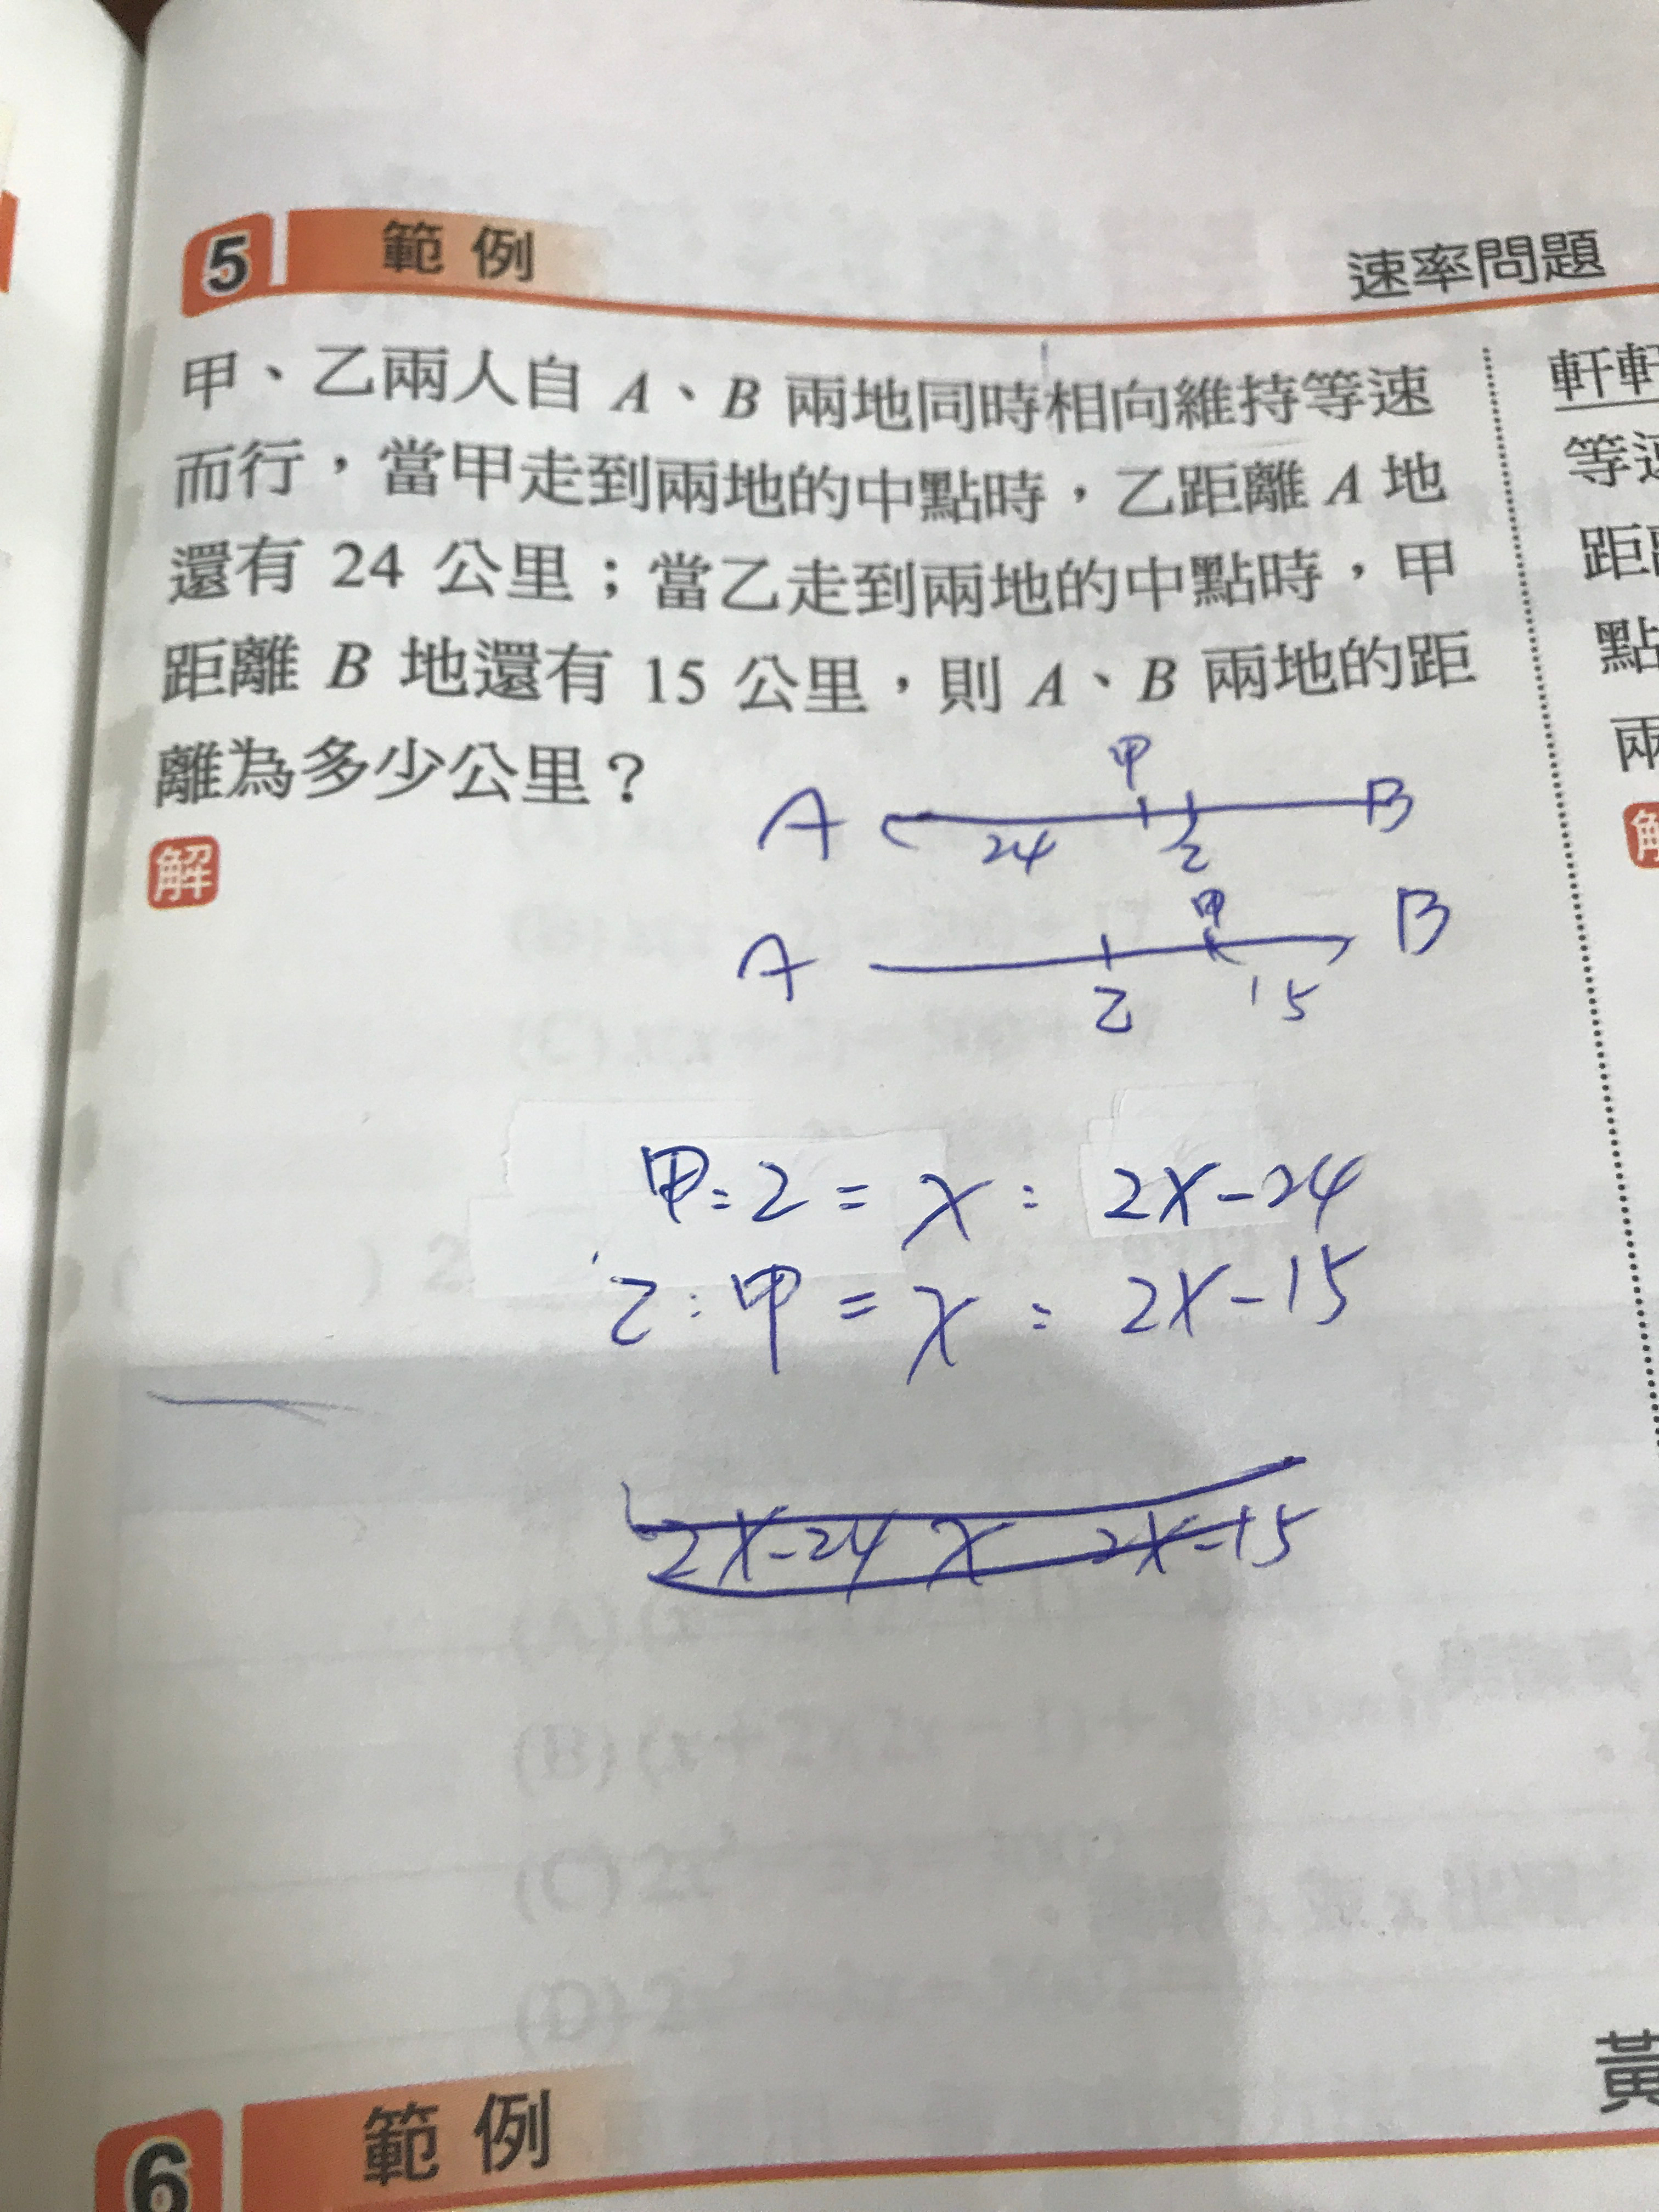 5 範例 速率問題
甲、乙兩人自 A、B 兩地同時相向維持等速
而行，當甲走到兩地的中點時，乙距離 A 地
還有 24 公里；當乙走到兩地的中點時，甲
距離 B 地還有 15 公里，則 A、B 兩地的距
離為多少公里？
解
甲
A 24 乙 B
甲
A 乙 15 B
甲:乙 = x : 2x-24
乙:甲 = x : 2x-15
2x-24 x 2x-15
軒軒
等速
點
兩
6 範例 黃